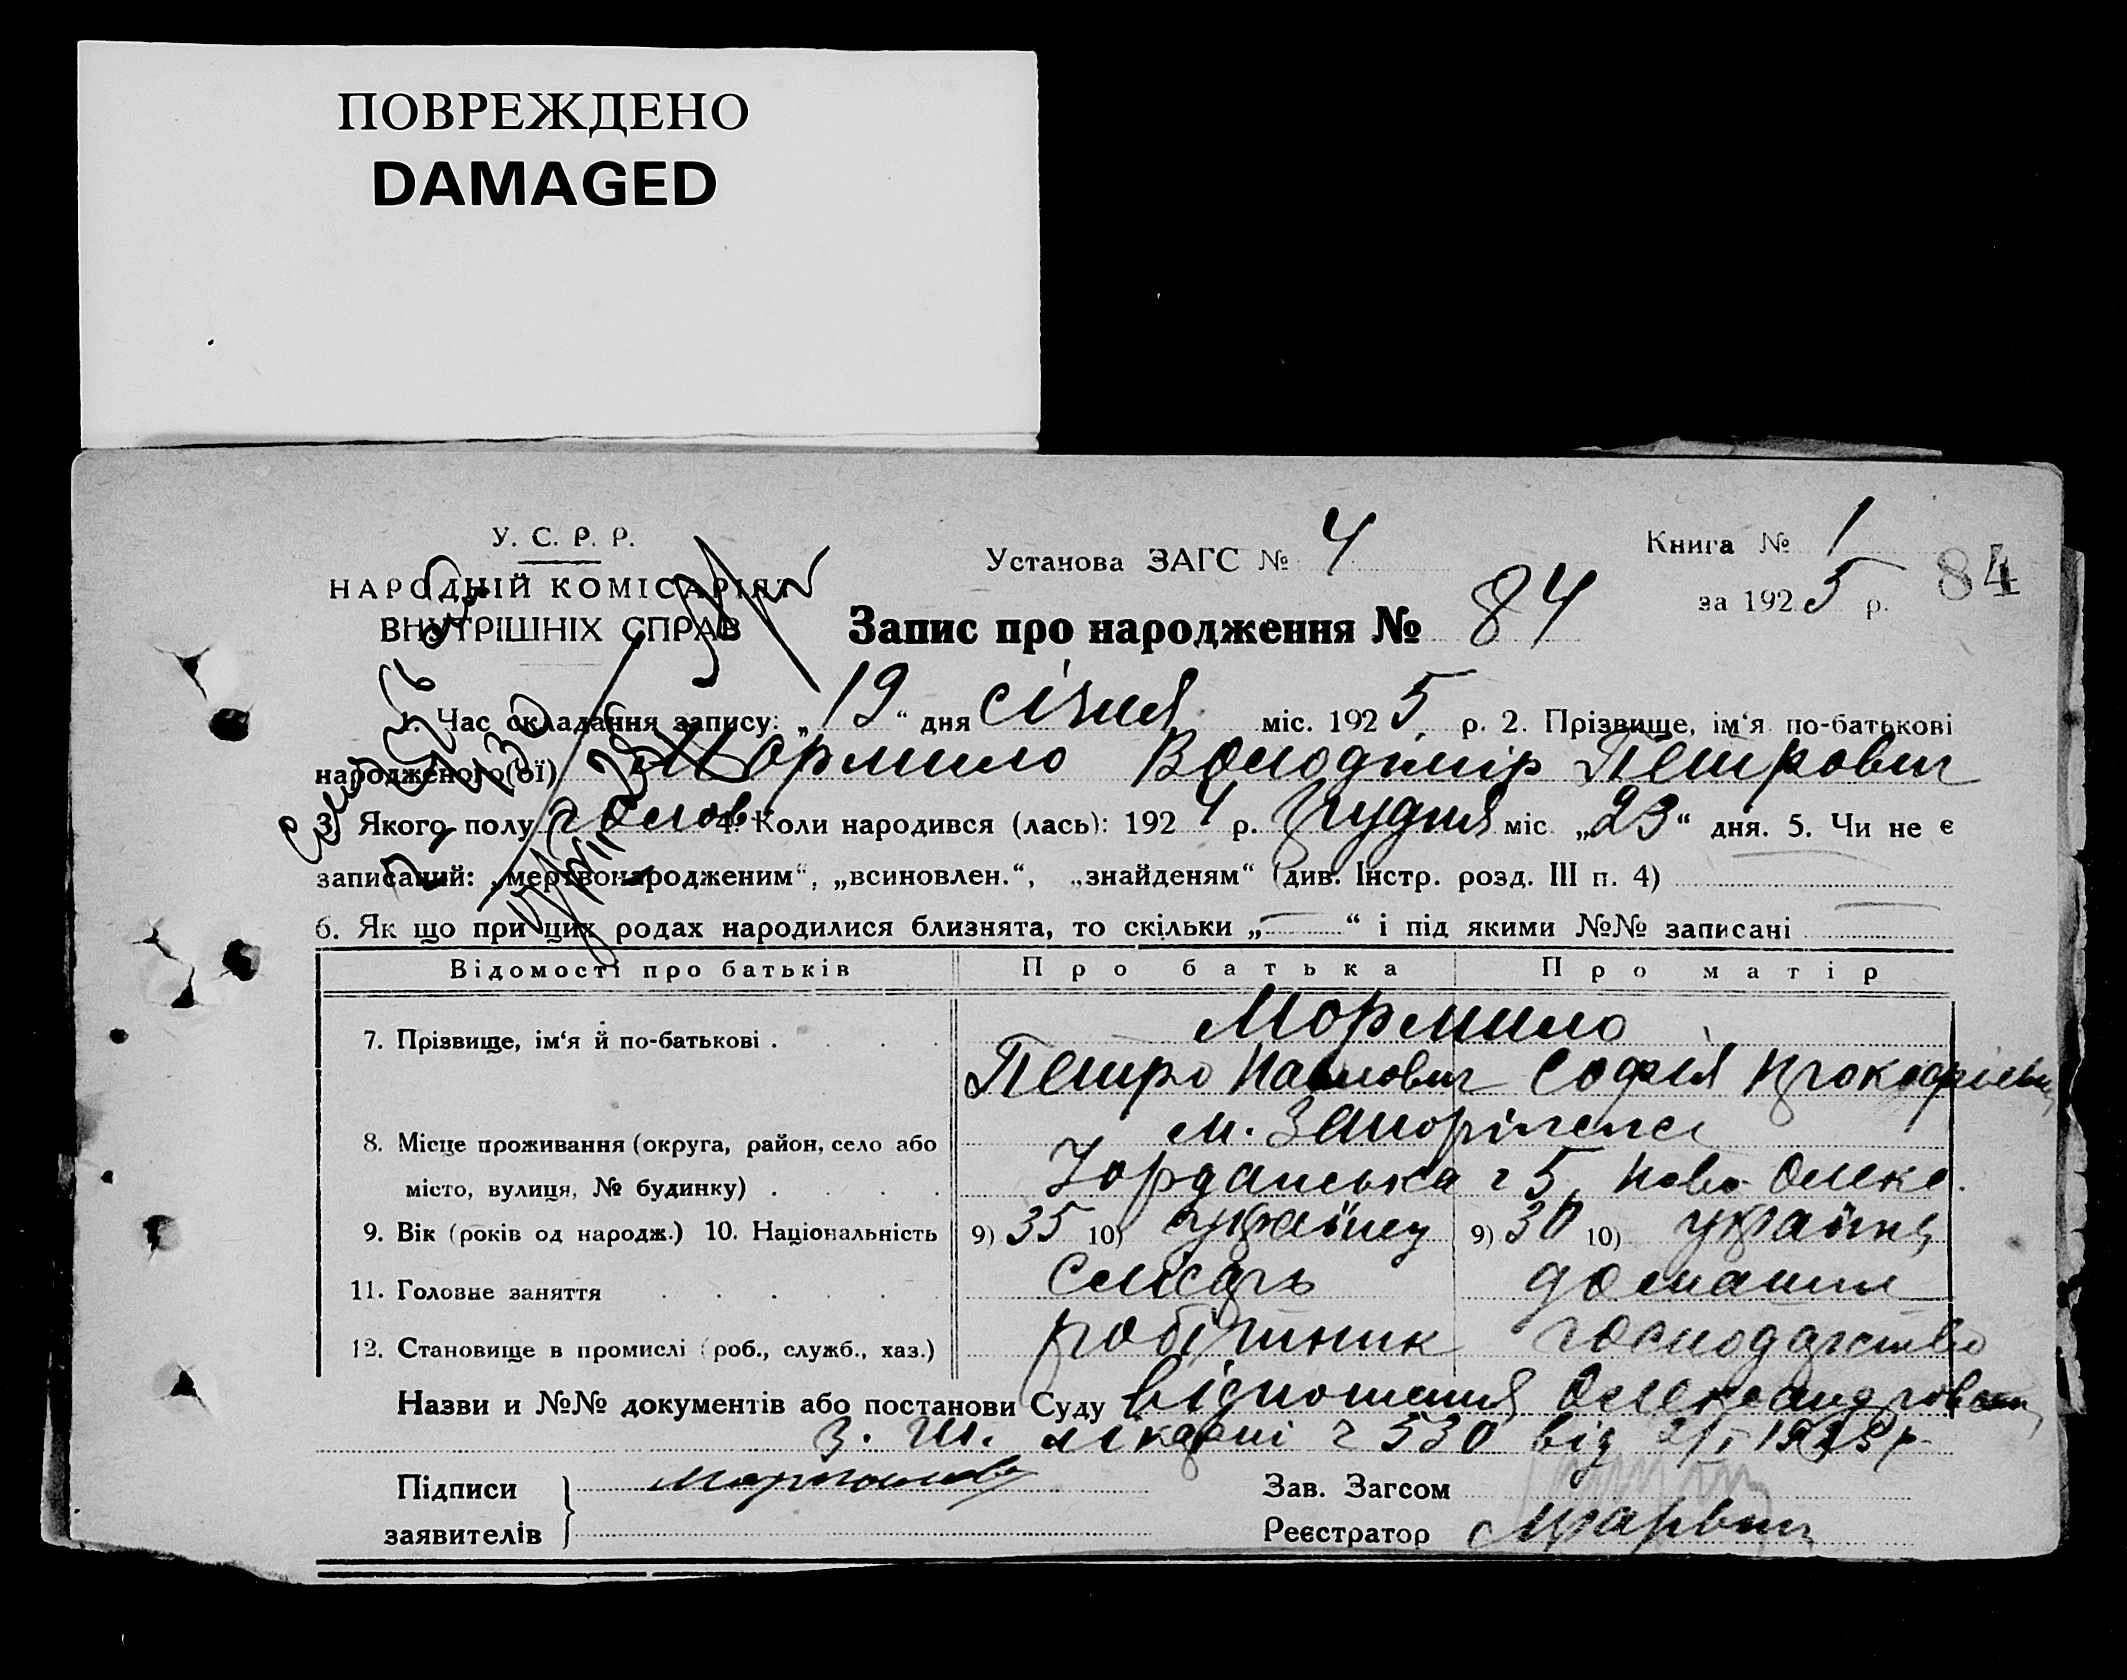 ПОВРЕЖДЕНО
DAMAGED
У. С. Р. Р.
НАРОДНІЙ КОМІСАРІЯТ
ВНУТРІШНІХ СПРАВ
Установа ЗАГС № 4
Книга № 1
за 1925 р.
84
Запис про народження № 84
1. Час складання запису: „19“ дня січня міс. 1925 р. 2. Прізвище, ім‘я по-батькові
народженого(ої) Мормило Володімір Петрович
3. Якого полу голов. 4. Коли народився (лась): 1924 р. грудня міс. „23“ дня. 5. Чи не є
записаний: „мертвонародженим“, „всиновлен.“, „знайденям“ (див. Інстр. розд. III п. 4)
6. Як що при цих родах народилися близнята, то скільки „—“ і під якими №№ записані —
Відомості про батьків Про батька Про матір
7. Прізвище, ім‘я й по-батькові . . . . Мормило
Петро Павлович Софія
8. Місце проживання (округа, район, село або м. Запоріжжя
місто, вулиця, № будинку) . . . . ч 5, Ново-Олекс.
9. Вік (років од народж.) 10. Національність 9) 35 10) українец 9) 30 10) українк
11. Головне заняття . . . . . . Слюсарь домашнє
12. Становище в промислі (роб., служб., хаз.) робітник господарство
Назви и №№ документів або постанови Суду відношення Олександровськ
лікарні ч 530 від
Підписи
заявителів
Зав. Загсом
Реєстратор